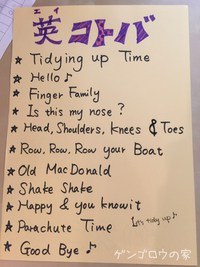 エイ
英コトバ
★ Tidying up Time
★ Hello♪
★ Finger Family
★ Is this my nose?
★ Head, Shoulders, Knees & Toes
★ Row, Row, Row your Boat
★ Old MacDonald
★ Shake Shake
★ Happy & you know it
★ Parachute Time
Let's tidy up♪
★ Good Bye♪
ゲンゴロウの家